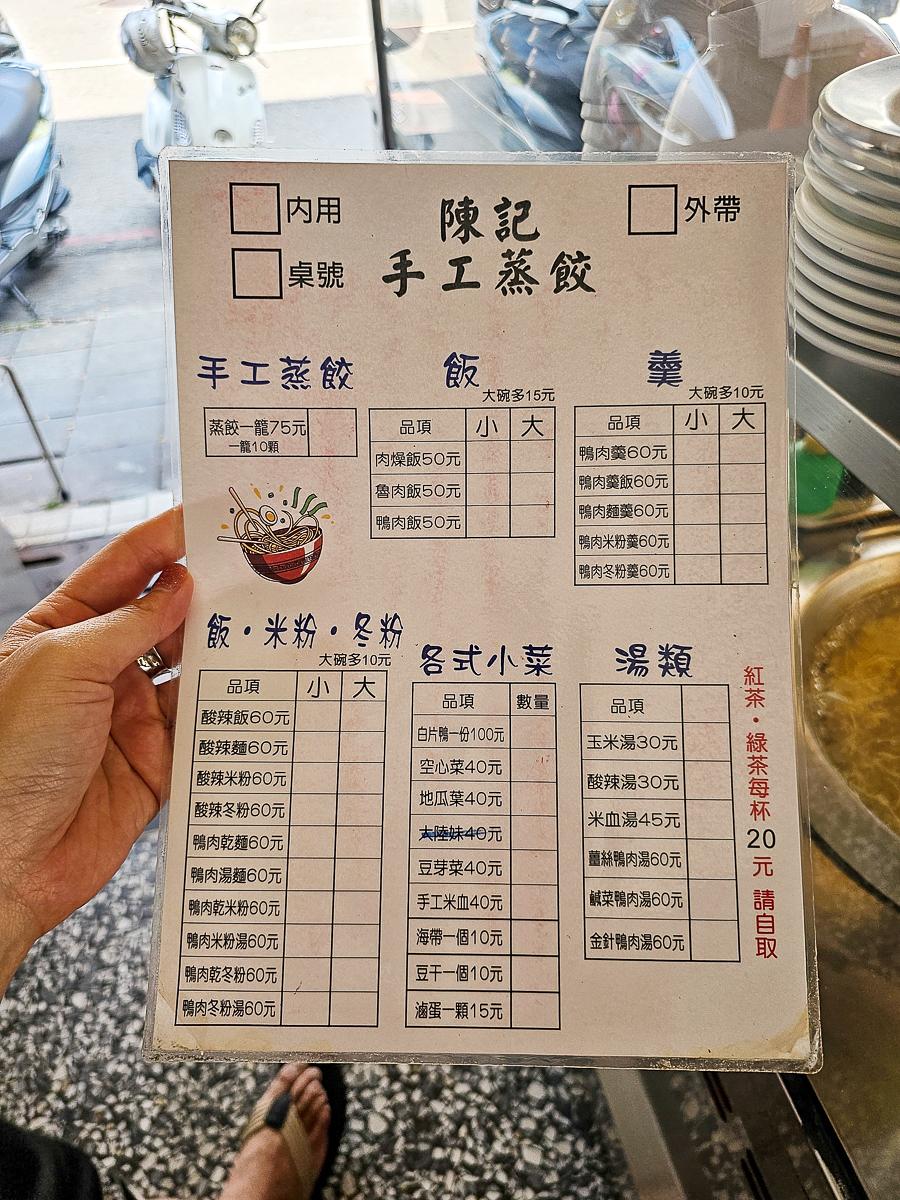 內用
外帶
桌號
陳記
手工蒸餃
手工蒸餃
蒸餃一籠75元
一籠10顆
飯
大碗多15元
品項 小 大
肉燥飯50元
魯肉飯50元
鴨肉飯50元
羹
大碗多10元
品項 小 大
鴨肉羹60元
鴨肉羹飯60元
鴨肉麵羹60元
鴨肉米粉羹60元
鴨肉冬粉羹60元
飯・米粉・冬粉
大碗多10元
品項 小 大
酸辣飯60元
酸辣麵60元
酸辣米粉60元
酸辣冬粉60元
鴨肉乾麵60元
鴨肉湯麵60元
鴨肉乾米粉60元
鴨肉米粉湯60元
鴨肉乾冬粉60元
鴨肉冬粉湯60元
各式小菜
品項 數量
白片鴨一份100元
空心菜40元
地瓜葉40元
大陸妹40元
豆芽菜40元
手工米血40元
海帶一個10元
豆干一個10元
滷蛋一顆15元
湯類
品項
玉米湯30元
酸辣湯30元
米血湯45元
薑絲鴨肉湯60元
鹹菜鴨肉湯60元
金針鴨肉湯60元
紅茶・綠茶每杯20元 請自取